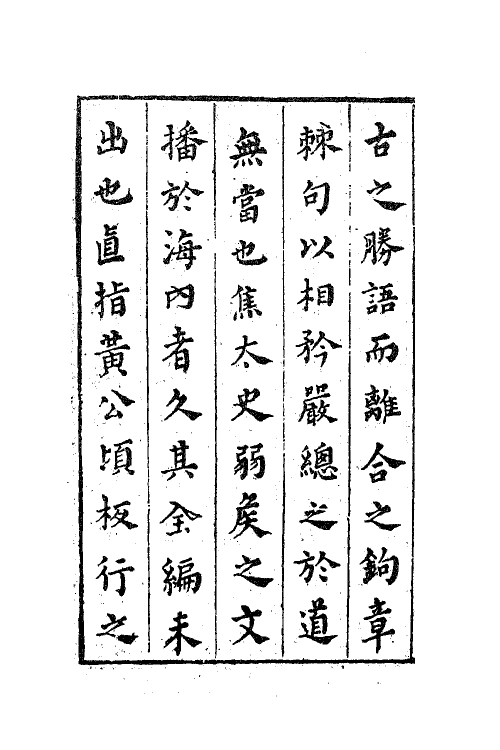 古之勝語而離合之鉤章
棘句以相矜嚴總之於道
無當也焦太史弱侯之文
播於海內者久其全編未
出也直指黃公頃板行之